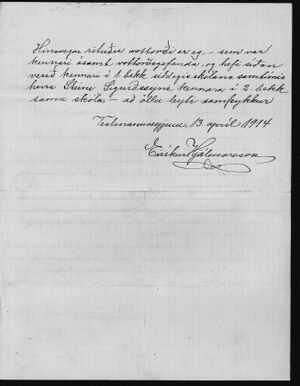 Hinsvegar ritaðri vottorði er eg, - sem var
kennari ásamt vottorðsgefanda, og hefi síðan
verið kennari í 1. bekk síðdegisskólans, samtímis
herra Steini Sigurðssyni kennara í 2. bekk
sama skóla - að öllu leyti samþykkur
Vestmannaeyjum, 13. apríl 1914
Eiríkur Hjálmarsson